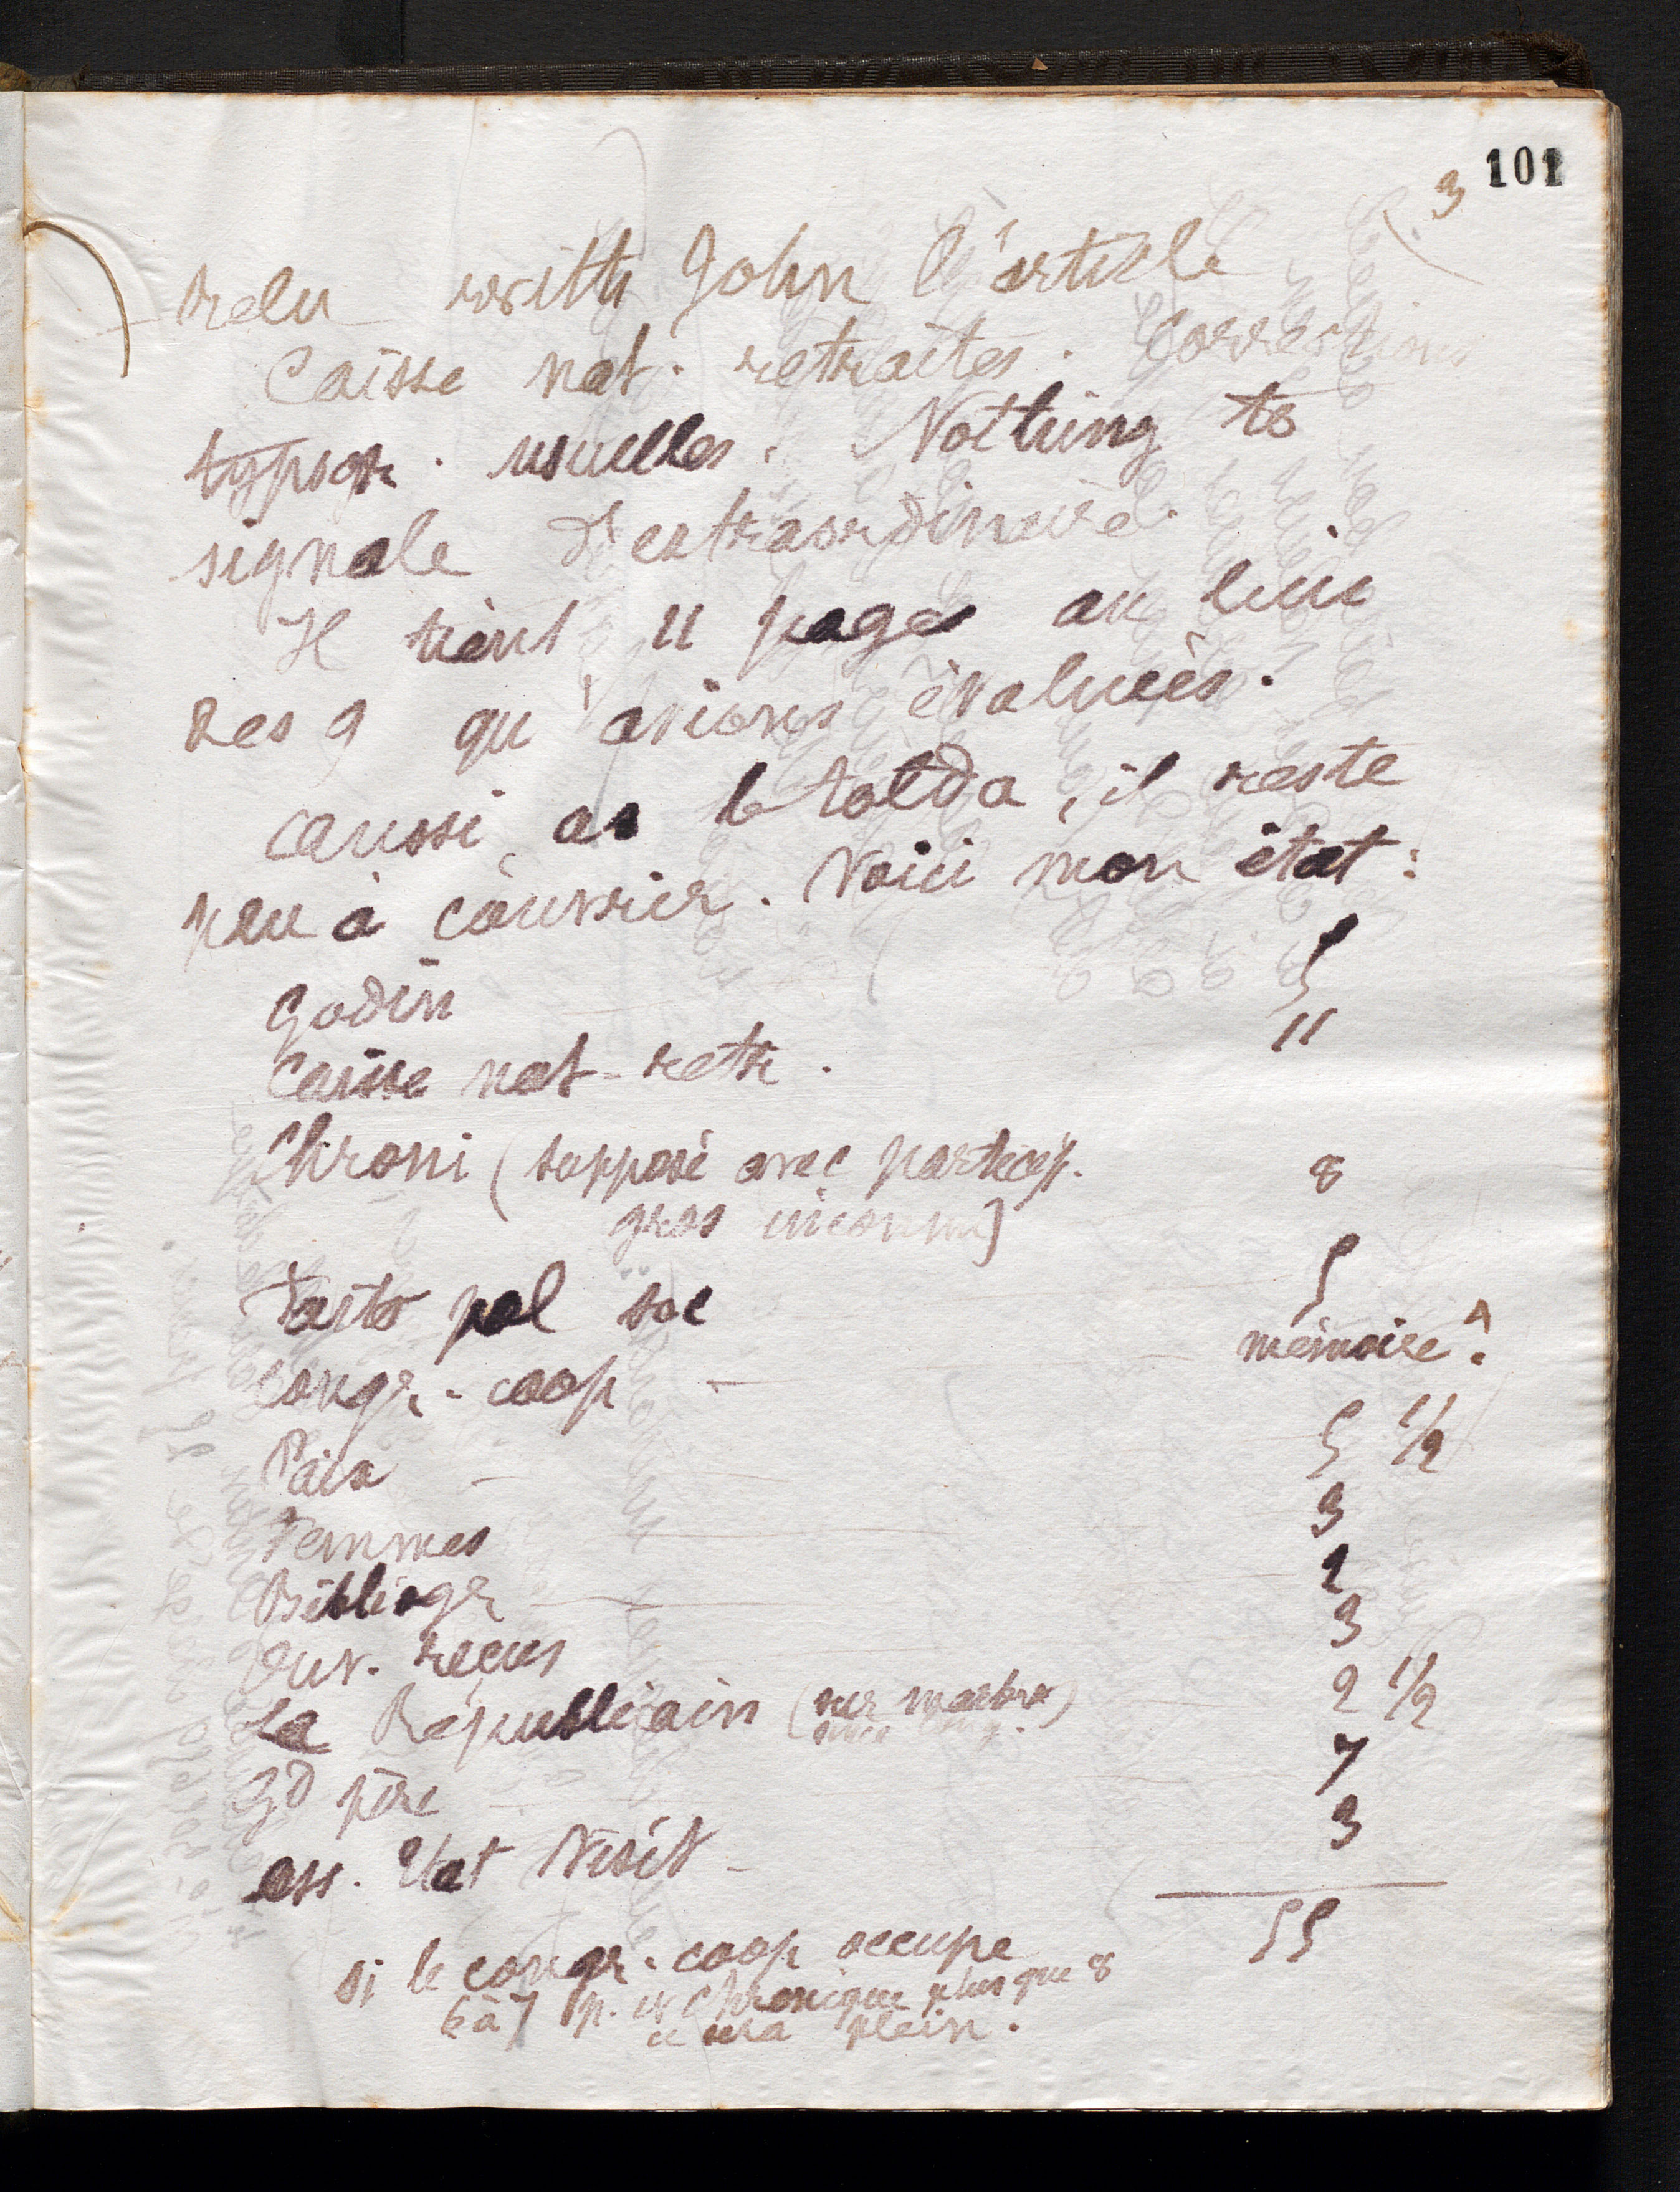 101
3
relu with John l'article
Caisse nat. retraites. Corrections
typogr. usuelles. Nothing to
signale d'extraordinaire.
Il tient 11 pages au lieu
des 9 qu'avions évaluées.
aussi, as le told a, il reste
peu à couvrir. Voici mon état :
Godin 5
Caisse nat. retr. 11
Chroni (supposé avec particip. 8
gros inconnu)
Faits pol soc 5
congr. coop - mémoire ?
Paix - 5 1/2
Femmes 3
Bibliogr 2
Ouv. reçus 3
Le Républicain (sur marbre) 2 1/2
Gd père 7
ass. Nat Visit - 3
55
si le congr. coop occupe
6 à 7 p. et Chronique plus que 8
ce sera plein.